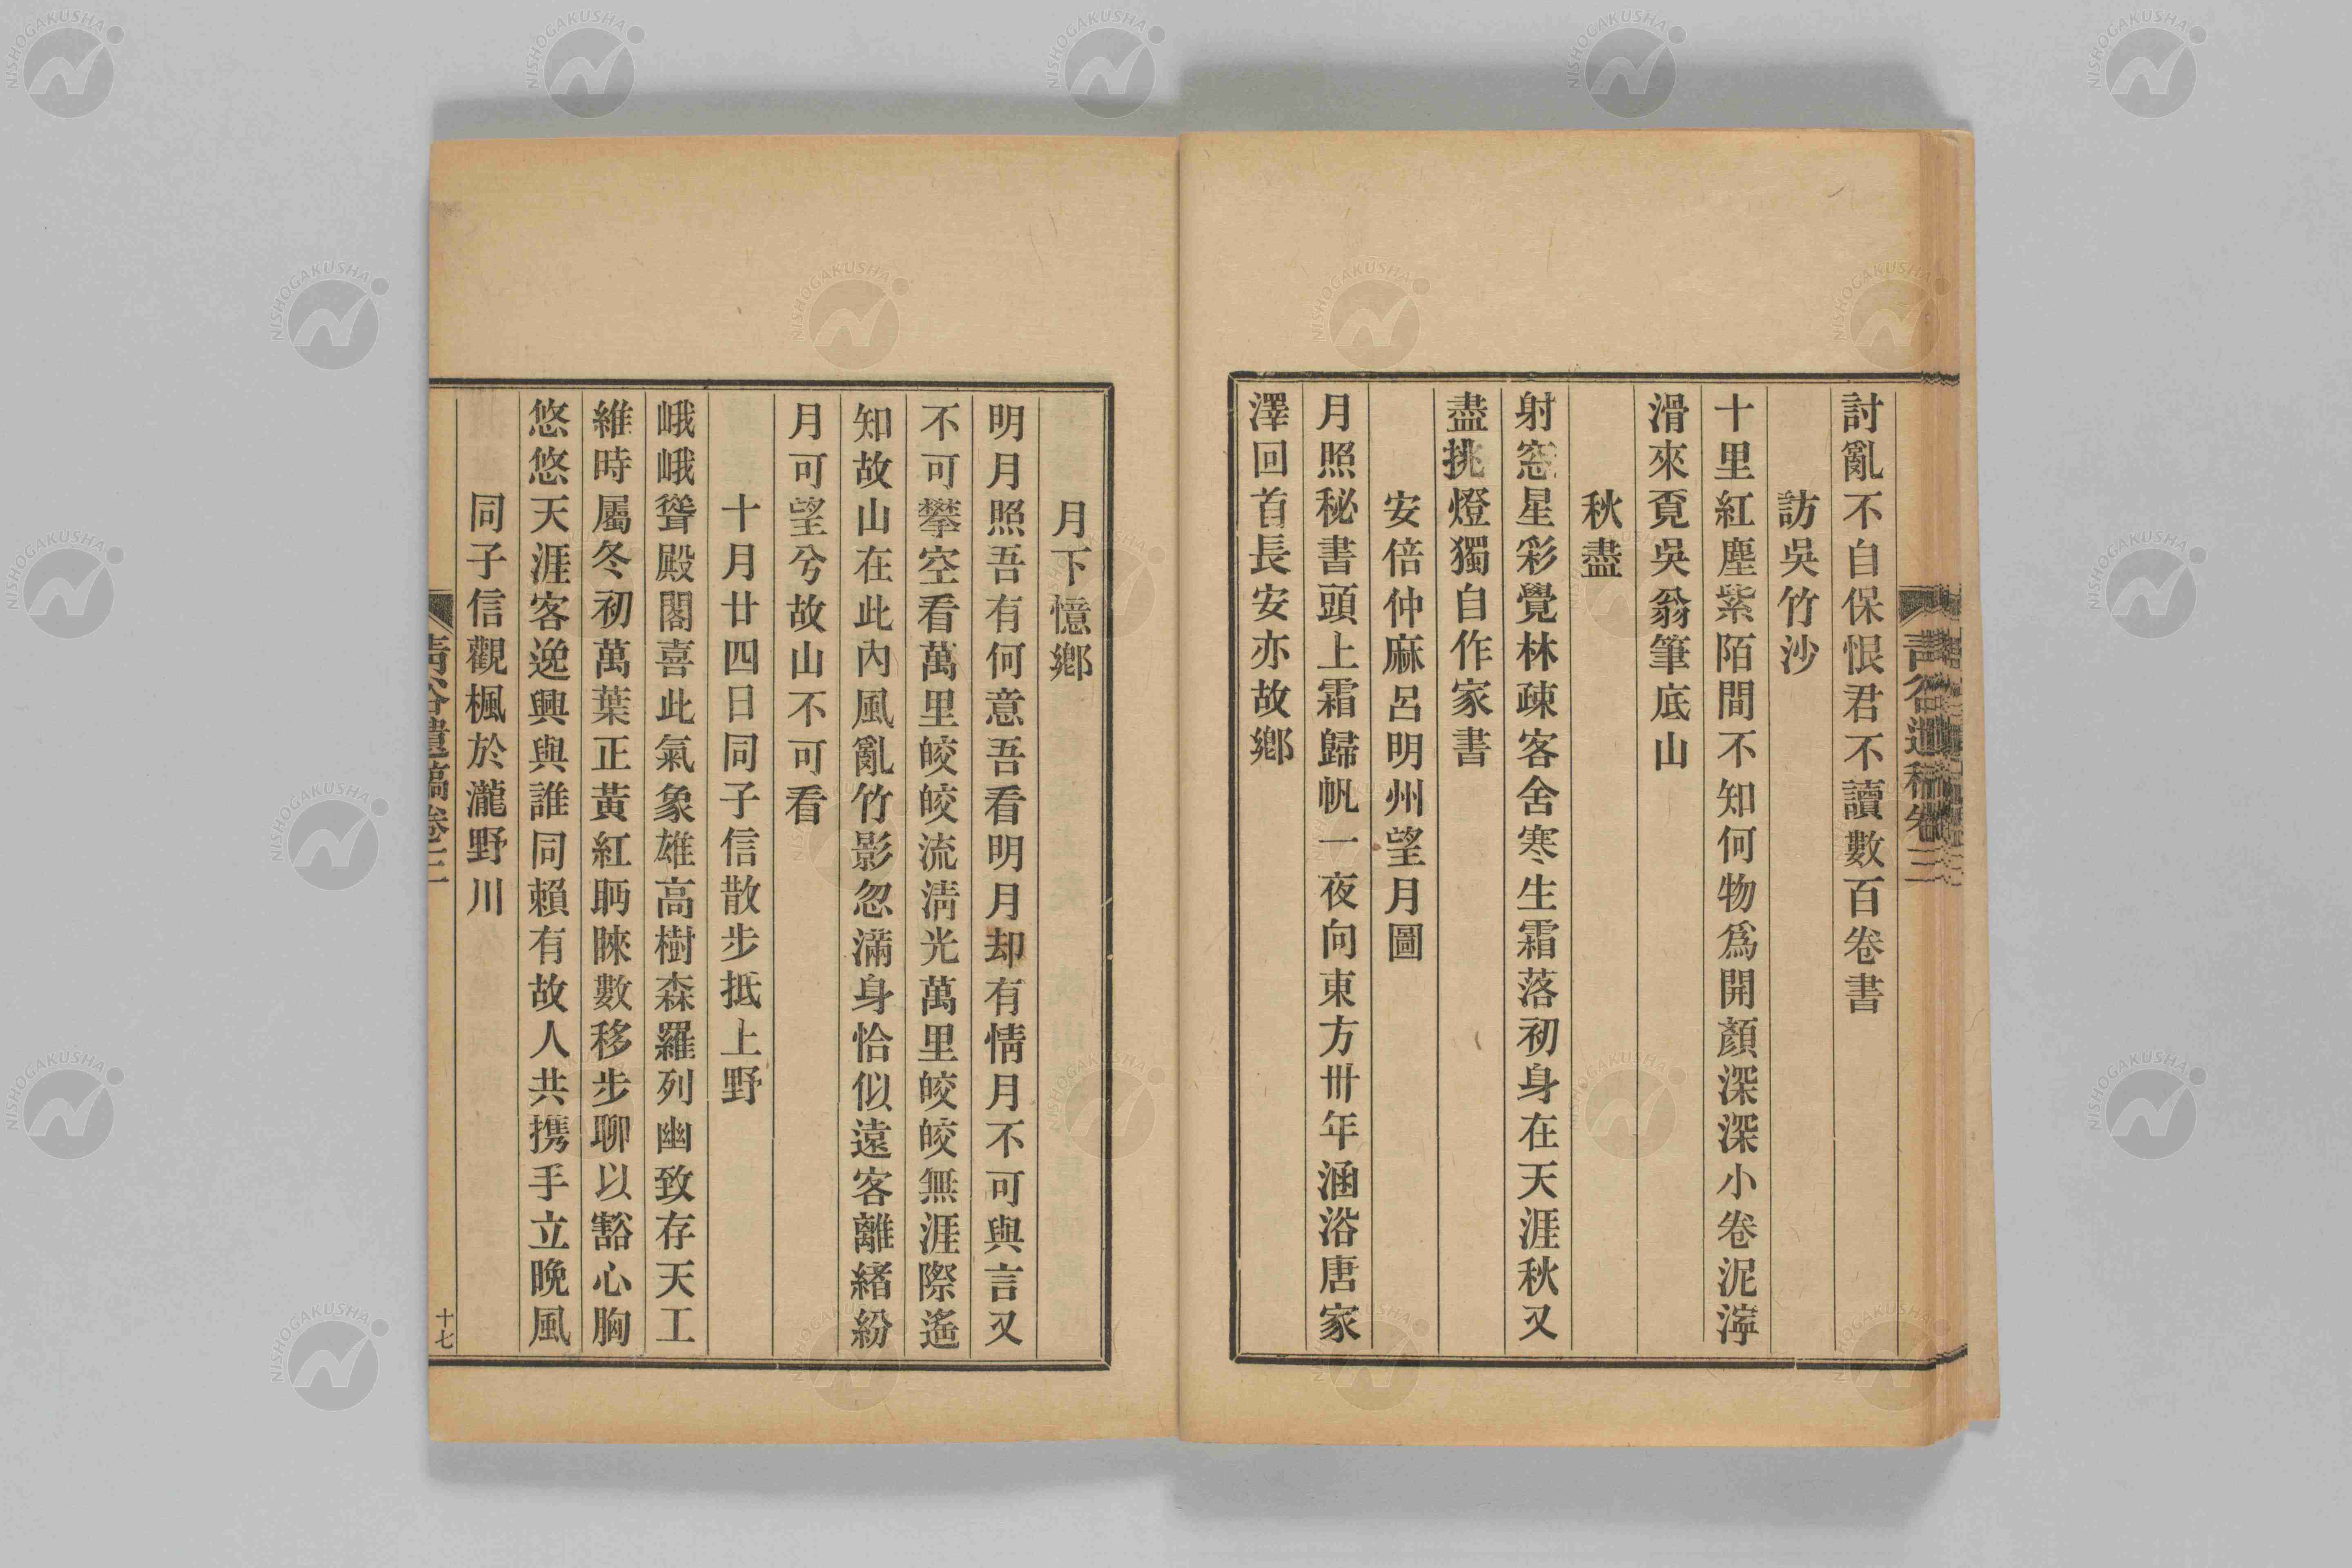 討亂不自保恨君不讀數百卷書
訪吳竹沙
十里紅塵紫陌間不知何物爲開顏深深小卷泥濘
滑來覔吳翁筆底山
秋盡
射窓星彩覺林疎客舍寒生霜落初身在天涯秋又
盡挑燈獨自作家書
安倍仲麻呂明州望月圖
月照秘書頭上霜歸帆一夜向東方卅年涵浴唐家
澤回首長安亦故鄉
月下憶鄉
明月照吾有何意吾看明月却有情月不可與言又
不可攀空看萬里皎皎流淸光萬里皎皎無涯際遙
知故山在此內風亂竹影忽滿身恰似遠客離緖紛
月可望兮故山不可看
十月廿四日同子信散步抵上野
峨峨聳殿閣喜此氣象雄高樹森羅列幽致存天工
維時屬冬初萬葉正黃紅眄睞數移步聊以豁心胸
悠悠天涯客逸興與誰同賴有故人共携手立晚風
同子信觀楓於瀧野川
靑谷遺稿卷三
十七
NISHOGAKUSHA